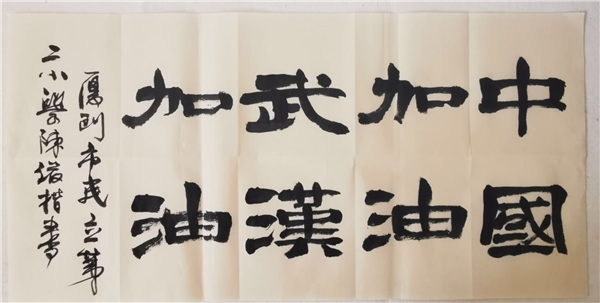 中國
加油
武漢
加油
市 立第
二小學陳 楷書